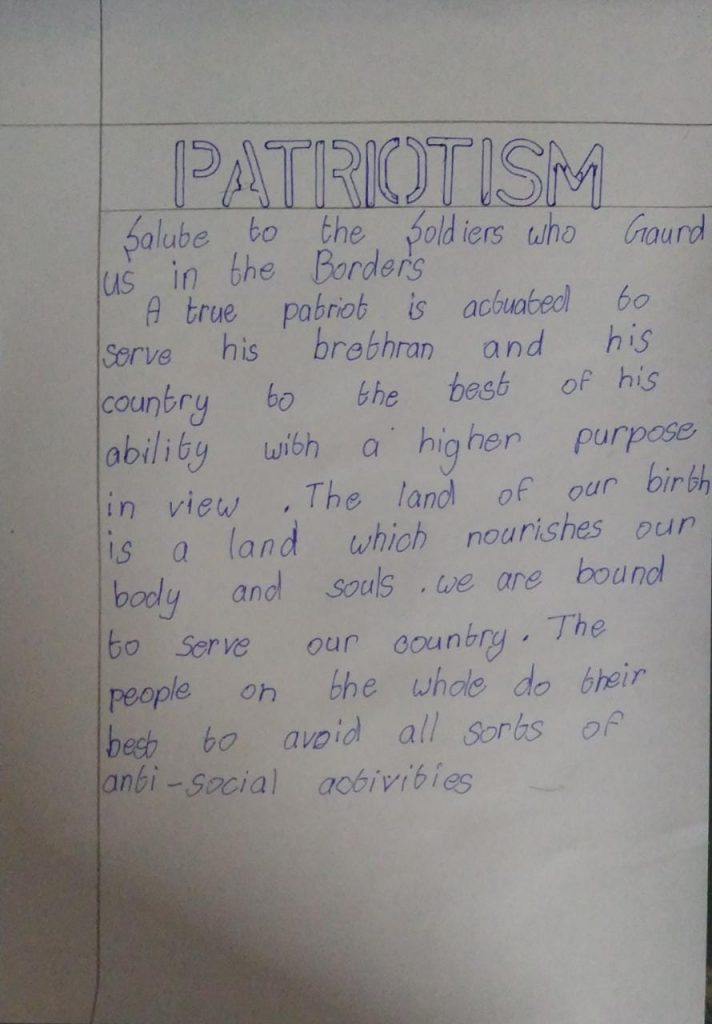 PATRIOTISM
Salute to the Soldiers who Gaurd
us in the Borders
A true patriot is actuated to
serve his brethran and his
country to the best of his
ability with a higher purpose
in view . The land of our birth
is a land which nourishes our
body and souls . we are bound
to serve our country . The
people on the whole do their
best to avoid all sorts of
anti-social activities